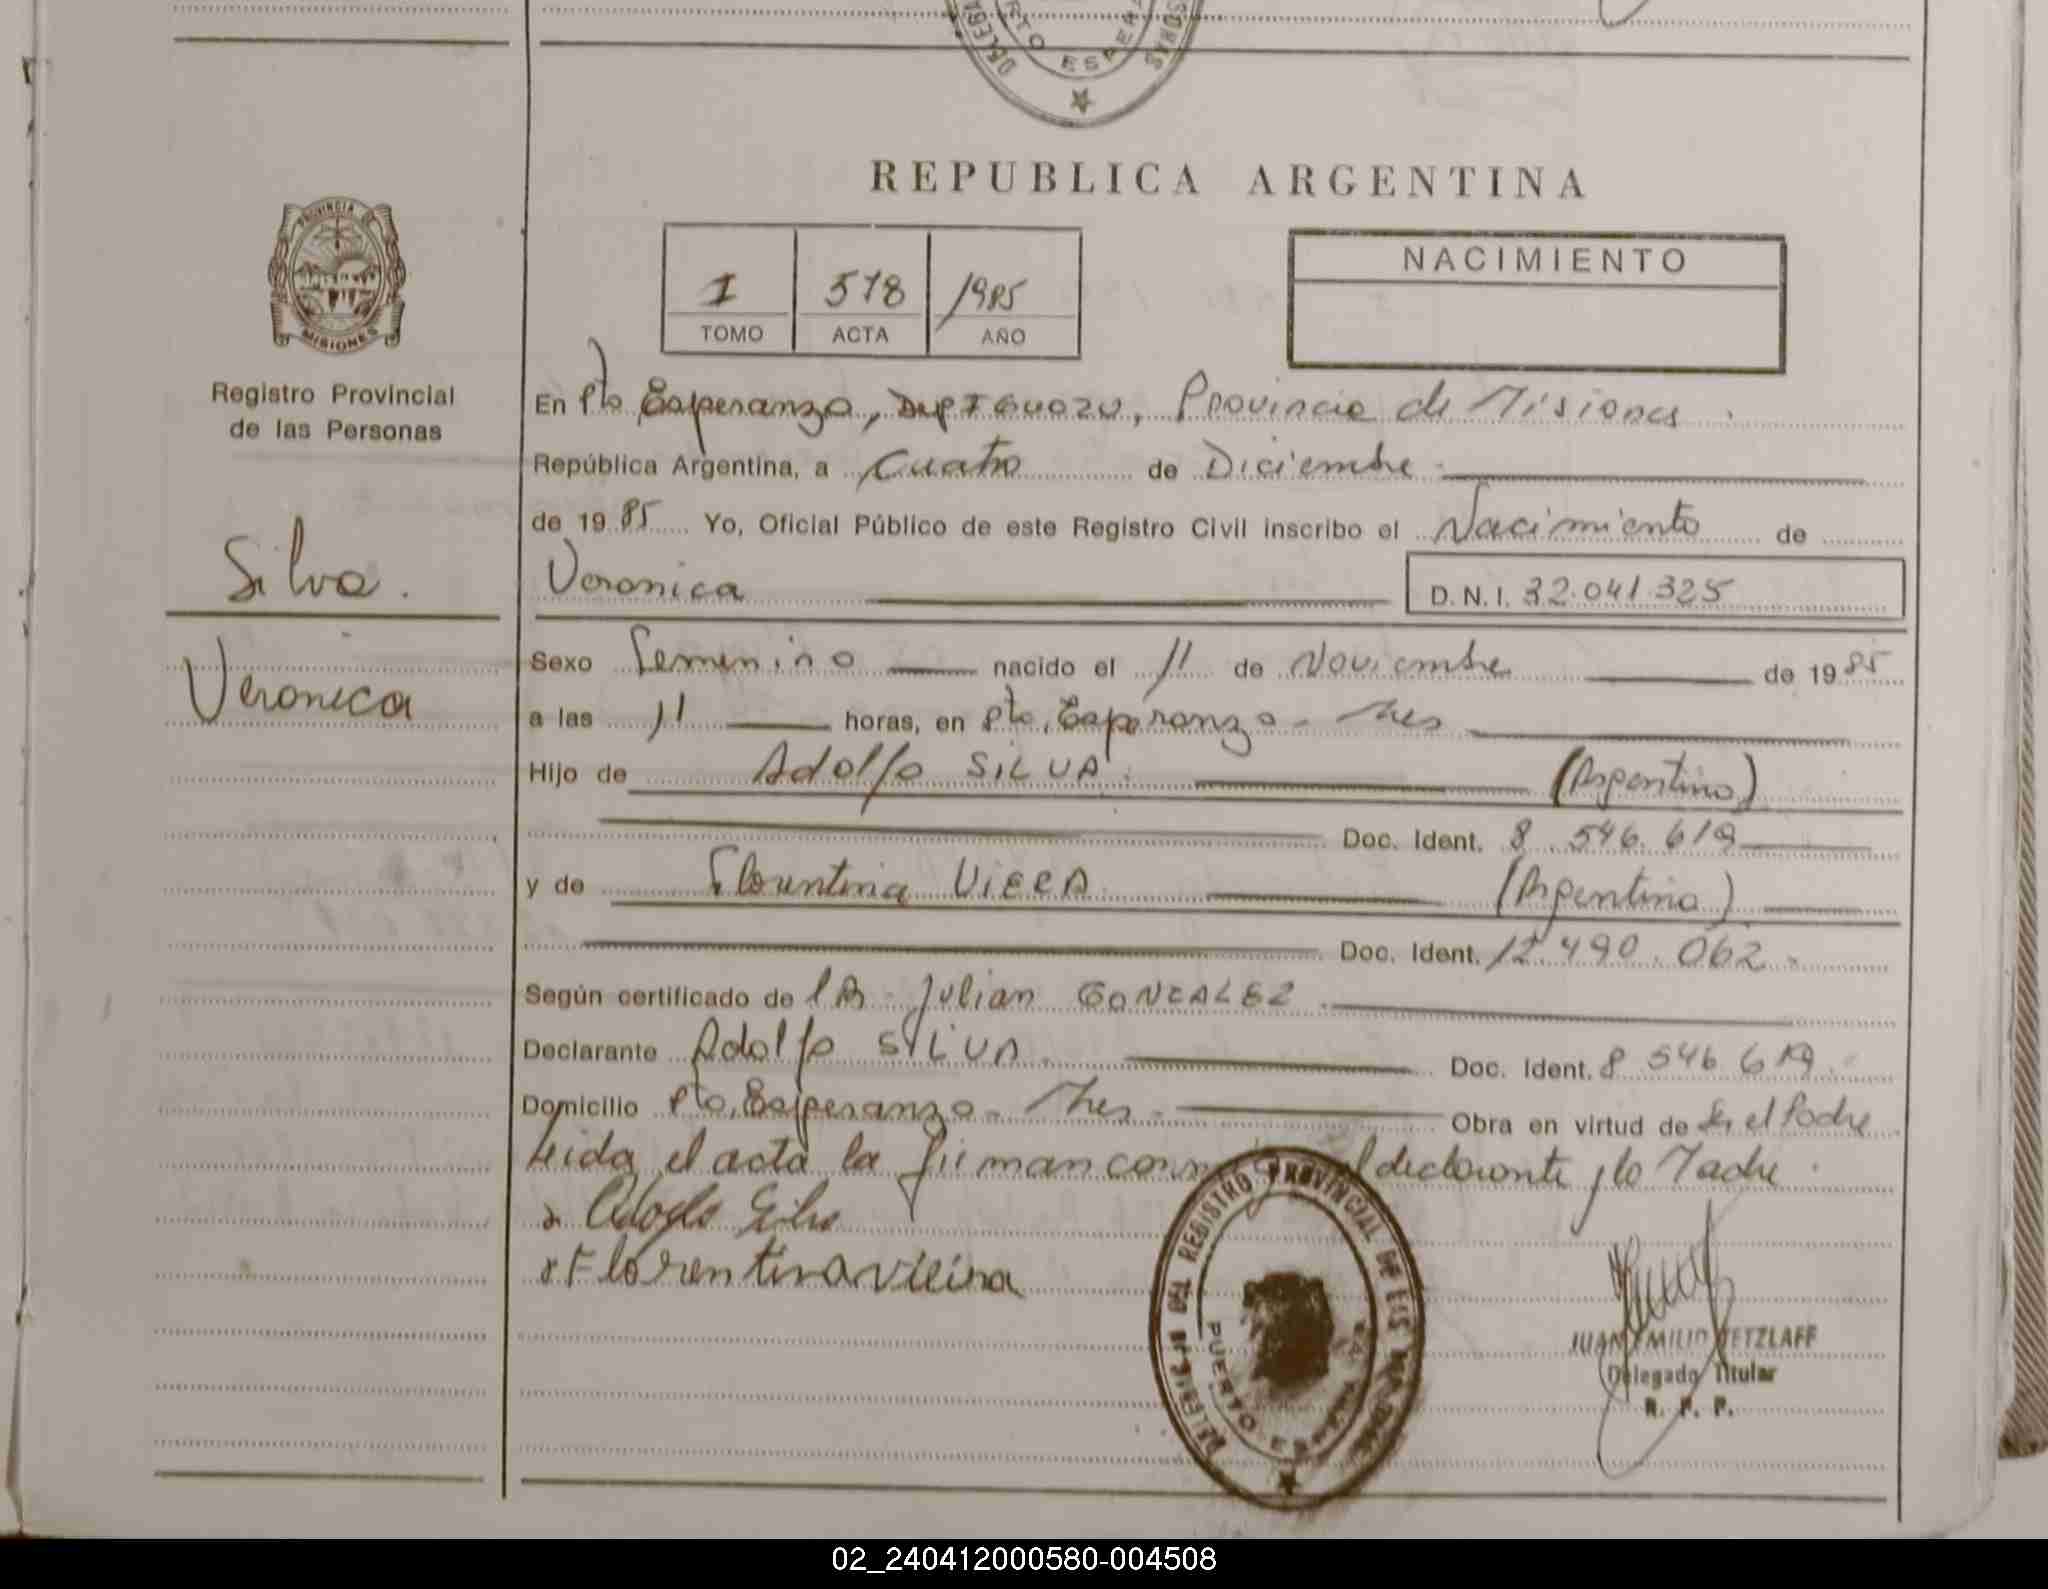 DELEGA
RTO ESPERA
SONAS
REPUBLICA ARGENTINA
PROVINCIA DE
MISIONES
Registro Provincial
de las Personas
I 578 1985
TOMO ACTA AÑO
NACIMIENTO
En Pto Esperanza, Dup Iguazu, Provincia de Misiones.
República Argentina, a Cuatro de Diciembre
de 1985 Yo, Oficial Público de este Registro Civil inscribo el Nacimiento de
Silva.
Veronica D.N.I. 32.041.325
Veronica
Sexo Femenino nacido el 11 de Noviembre de 1985
a las 11 horas, en Pto. Esperanza - Mnes
Hijo de Adolfo SILVA. (Argentino)
Doc. Ident. 8.546.619
y de Florentina VIERA (Argentina)
Doc. Ident. 12.490.062.
Según certificado de Julian GONZALEZ
Declarante Adolfo SILVA. Doc. Ident. 8.546.619.
Domicilio Pto. Esperanza - Mnes - Obra en virtud de Ser el Padre
Leida el acta la firman el declarante y la Madre.
x Adolfo Silva
x Florentina vieira
DELEGACION DEL REGISTRO PROVINCIAL DE LAS PERSONAS
PUERTO ESPERANZA
JUAN EMILIO RETZLAFF
Delegado Titular
R. P. P.
02_240412000580-004508